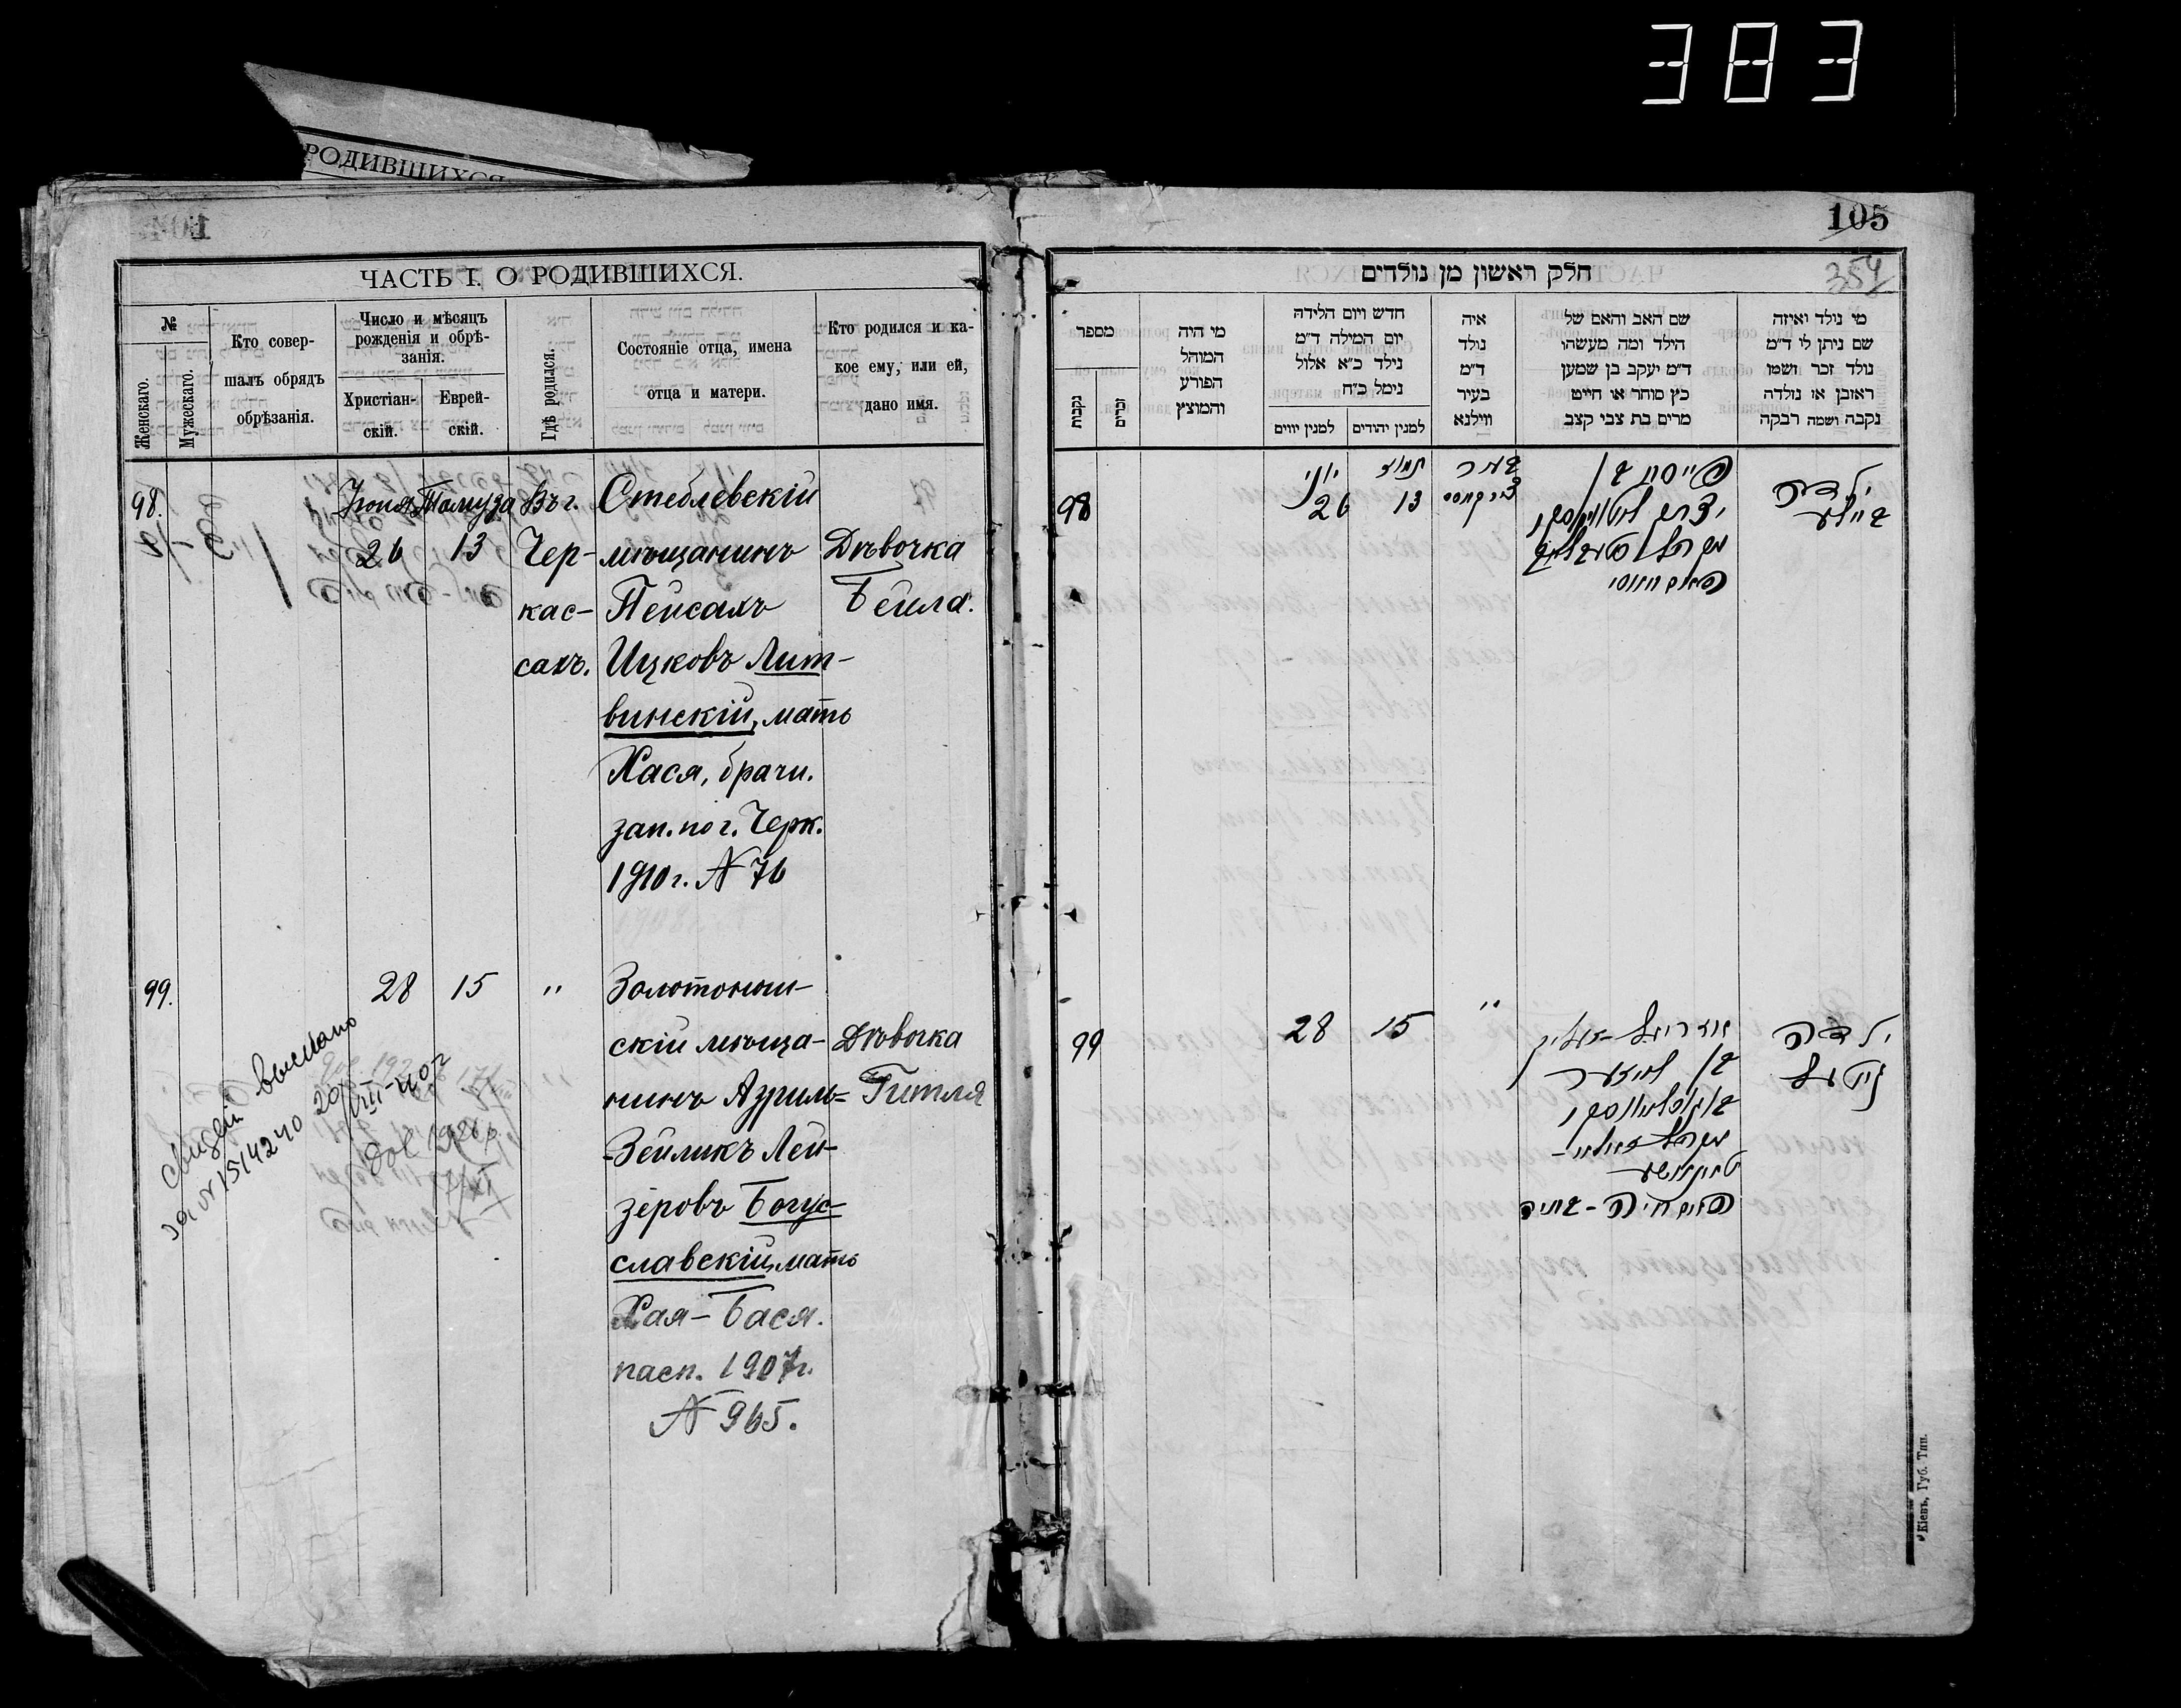 383
РОДИВШИХСЯ
ЧАСТЬ I. О РОДИВШИХСЯ.
№
Женскаго.
Мужескаго.
Кто совер-
шалъ обрядъ
обрѣзанія.
Число и мѣсяцъ
рожденія и обрѣ-
занія.
Христіан-
скій.
Еврей-
скій.
Гдѣ родился.
Состояніе отца, имена
отца и матери.
Кто родился и ка-
кое ему, или ей,
дано имя.
98.
Іюня
26
Тамуза
13
Въ г.
Чер-
кас-
сахъ.
Стеблевскій
мѣщанинъ
Пейсахъ
Ицковъ Лит-
винскій, мать
Хася, брачн.
зап. по г. Черк.
1910 г. № 76
Дѣвочка
Бейла.
99.
28
15
"
Золотонош-
скій мѣща-
нинъ Азриль-
Зейликъ Лей-
зеровъ Богус-
славскій, мать
Хая-Бася.
пасп. 1907 г.
№ 965.
Дѣвочка
Гитля
выслано
за № 1514240
20/VIII-40 г
105
354
חלק ראשון מן נולדים
מספר
נקבות
זכרים
מי היה
המוהל
הפורע
והמוצץ
חדש ויום הלידה
יום המילה ד"מ
נילד כ"א אלול
נימל כ"ח
למנין יווים
למנין יהודים
איה
נולד
ד"מ
בעיר
ווילנא
שם האב והאם של
הילד ומה מעשהו
ד"מ יעקב בן שמען
כץ סוחר או חייט
מרים בת צבי קצב
מי נולד ואיזה
שם ניתן לו ד"מ
נולד זכר ושמו
ראובן או נולדה
נקבה ושמה רבקה
98
יוני
26
תמוז
13
פייסח בן
יצחק ליטווינסקי
ילדה
ביילע
99
28
15
"
עזריאל-זעליק
בן לייזער
באגוסלאווסקי
ילדה
גיטעל
Кіевъ, Губ. Тип.